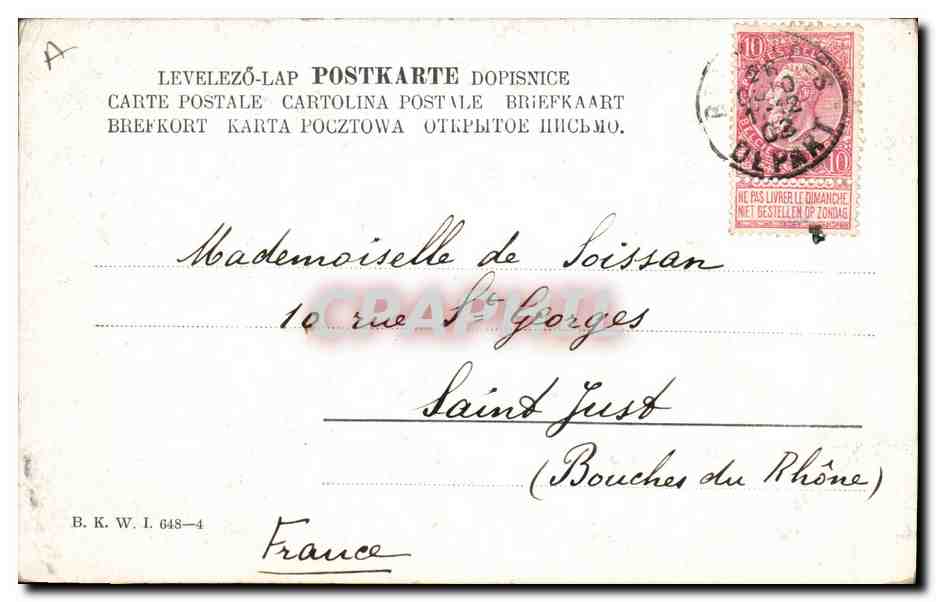 A
LEVELEZŐ-LAP POSTKARTE DOPISNICE
CARTE POSTALE CARTOLINA POSTALE BRIEFKAART
BREFKORT KARTA POCZTOWA ОТКРЫТОЕ ПИСЬМО.
10
DEPART
10
NE PAS LIVRER LE DIMANCHE
NIET BESTELLEN OP ZONDAG
Mademoiselle de Soissan
10 rue St Georges
Saint Just
(Bouches du Rhône)
B. K. W. I. 648—4
France